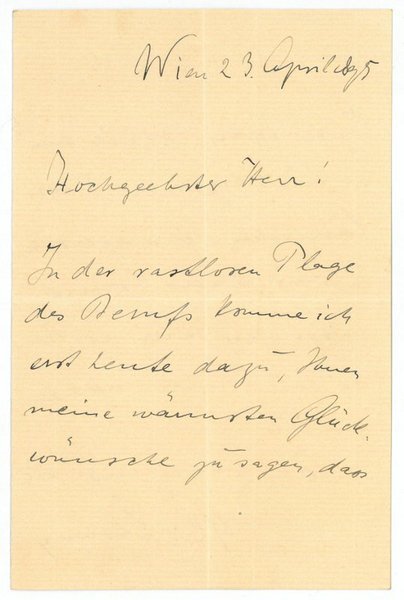 Wien 23. April 1895
Hochgeehrter Herr!
In der rastlosen Plage
des Berufs komme ich
erst heute dazu, Ihnen
meine wärmsten Glück-
wünsche zu sagen, dass